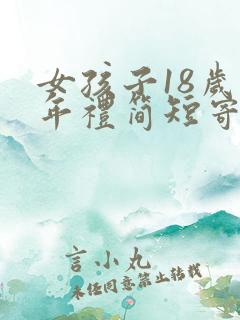 女孩子18歲
年禮简短寄
言小丸
未经同意禁止转载